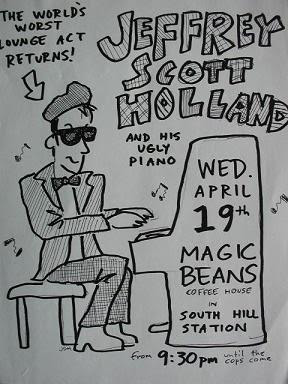 THE WORLD'S
WORST
LOUNGE ACT
RETURNS!
JEFFREY
SCOTT
HOLLAND
AND HIS
UGLY
PIANO
WED.
APRIL
19th
MAGIC
BEANS
COFFEE HOUSE
IN
SOUTH HILL
STATION
from 9:30pm until the
cops come